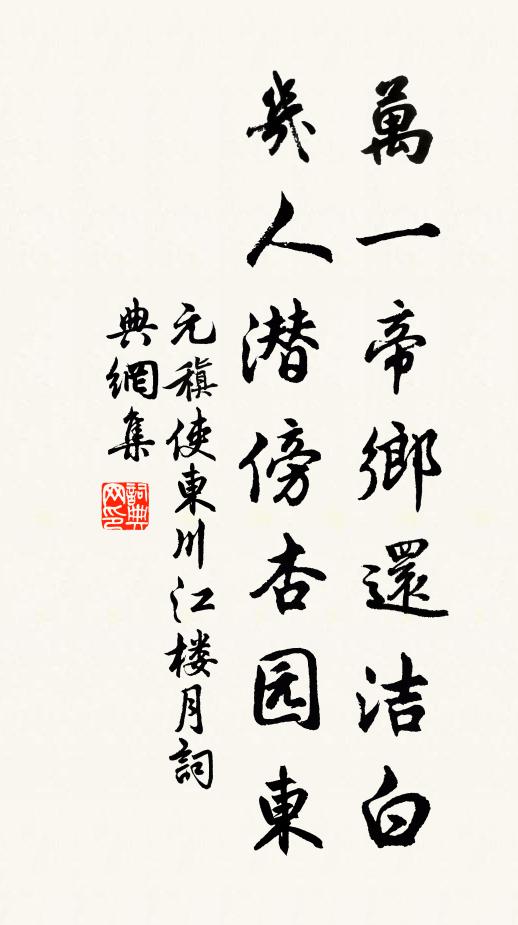 萬一帝鄉還洁白
幾人潜傍杏园東
元稹使東川江楼月詞
典網集
詞典网印